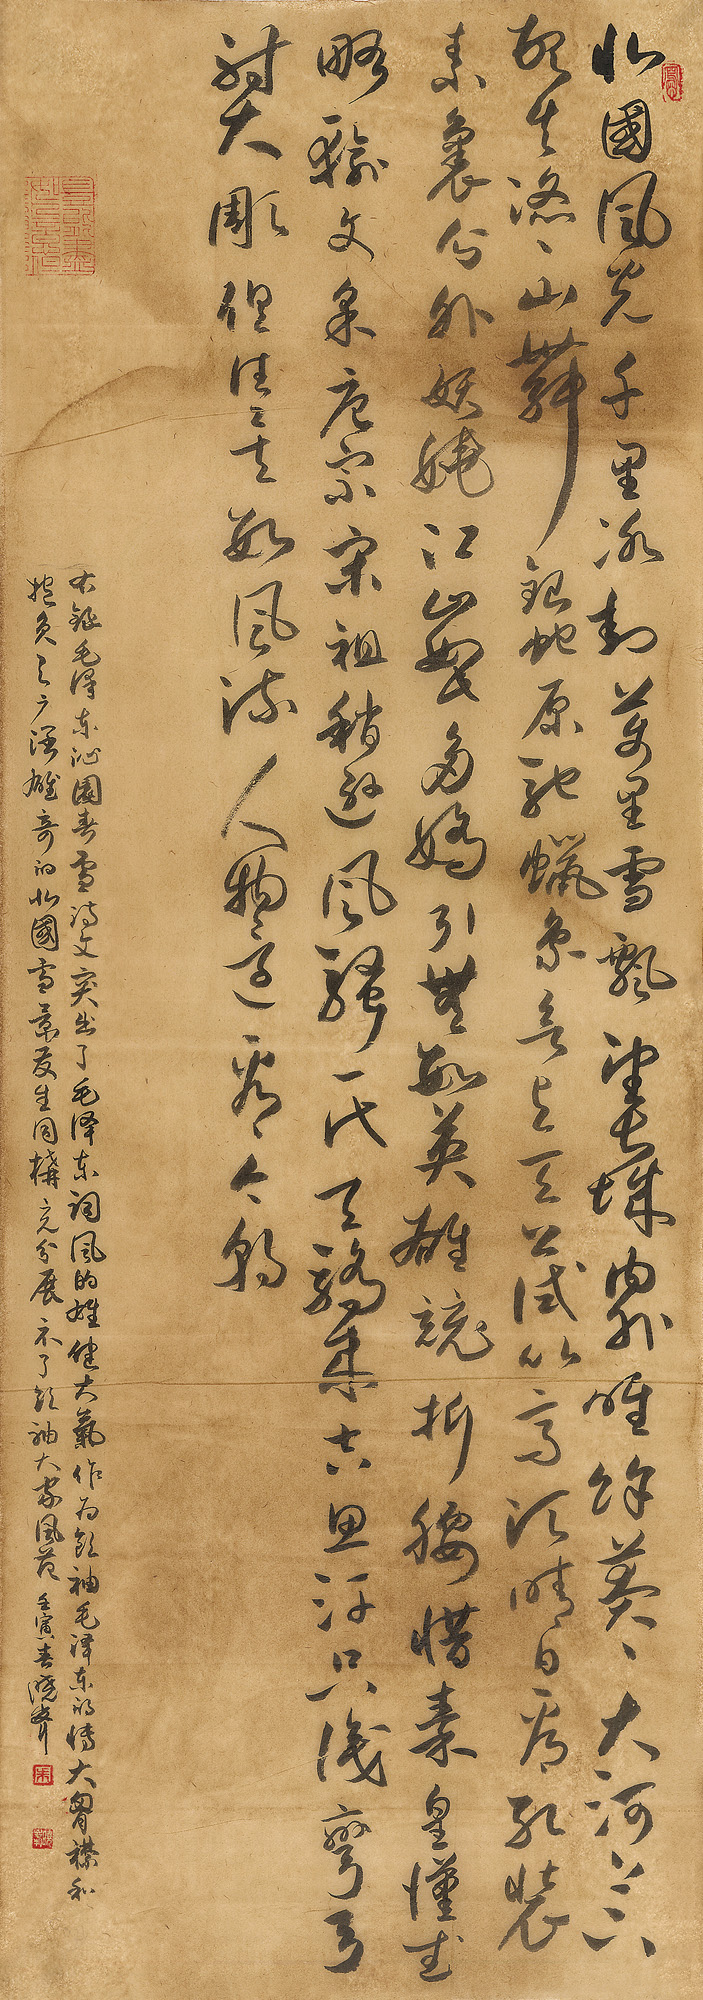 北國風光千里冰封萬里雪飄望長城內外唯餘莽、大河上下
頓失滔、山舞銀蛇原馳蠟象欲與天公試比高須晴日看紅裝
素裹分外妖嬈江山如此多嬌引無數英雄競折腰惜秦皇漢武
略輸文采唐宗宋祖稍遜風騷一代天驕成吉思汗只識彎弓
射大雕俱往矣數風流人物還看今朝
右錄毛澤東沁園春雪詩文突出了毛澤東詞風的雄健大氣作為領袖毛澤東的博大胸襟和
抱負與廣闊雄奇的北國雪景發生同構充分展示了領袖大家風范 壬寅春曉
朱